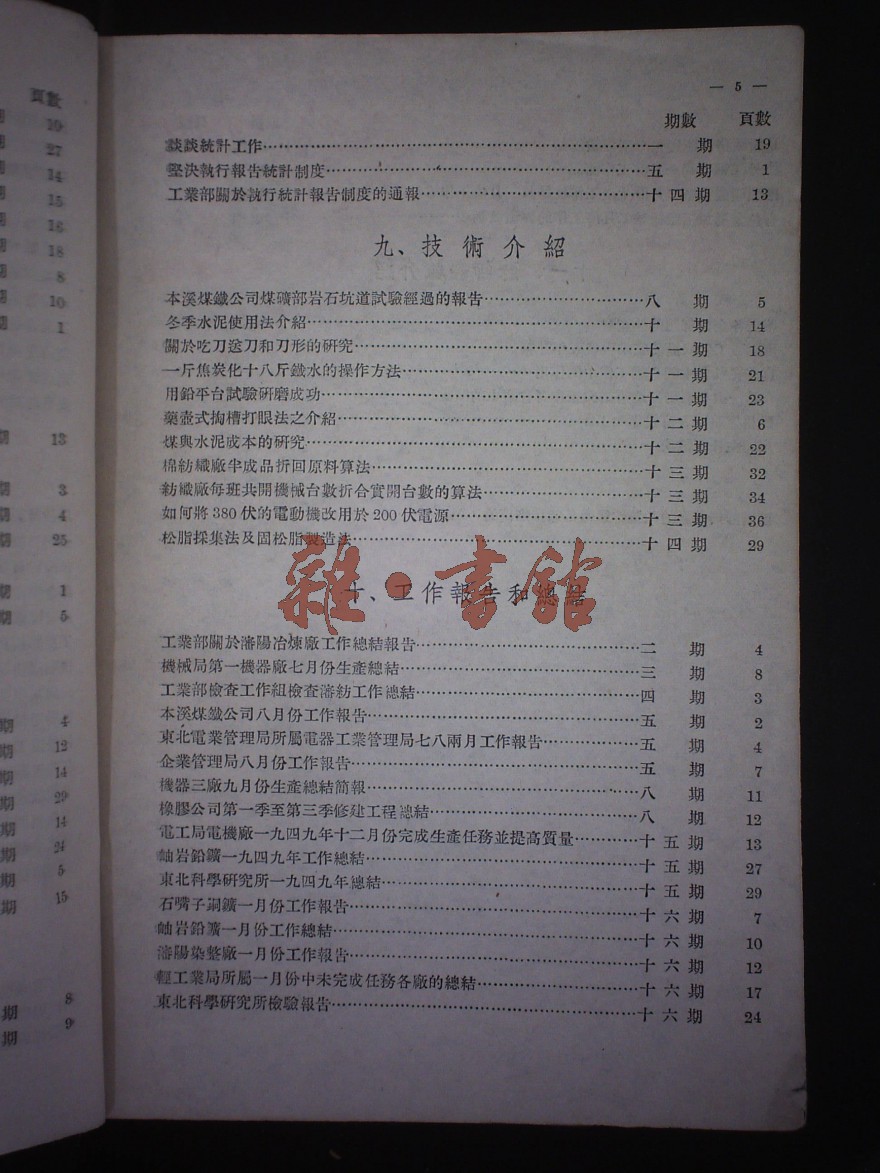 頁數
19
27
14
15
16
18
8
10
1
期 13
期 3
期 4
期 25
期 1
期 5
期 4
期 12
期 14
期 29
期 14
期 24
期 5
期 15
期 8
期 9
— 5 —
期數 頁數
談談統計工作……一期 19
堅決執行報告統計制度……五期 1
工業部關於執行統計報告制度的通報……十四期 13
九、技術介紹
本溪煤鐵公司煤礦部岩石坑道試驗經過的報告……八期 5
冬季水泥使用法介紹……十期 14
關於吃刀送刀和刀形的研究……十一期 18
一斤焦炭化十八斤鐵水的操作方法……十一期 21
用鉛平台試驗研磨成功……十一期 23
藥壺式掏槽打眼法之介紹……十二期 6
煤與水泥成本的研究……十二期 22
棉紡織廠半成品折回原料算法……十三期 32
紡織廠每班共開機械台數折合實開台數的算法……十三期 34
如何將380伏的電動機改用於200伏電源……十三期 36
松脂採集法及固松脂製造法……十四期 29
雜·書館
十、工作報告和總結
工業部關於瀋陽冶煉廠工作總結報告……二期 4
機械局第一機器廠七月份生產總結……三期 8
工業部檢查工作組檢查瀋紡工作總結……四期 3
本溪煤鐵公司八月份工作報告……五期 2
東北電業管理局所屬電器工業管理局七八兩月工作報告……五期 4
企業管理局八月份工作報告……五期 7
機器三廠九月份生產總結簡報……八期 11
橡膠公司第一季至第三季修建工程總結……八期 12
電工局電機廠一九四九年十二月份完成生產任務並提高質量……十五期 13
岫岩鉛鑛一九四九年工作總結……十五期 27
東北科學研究所一九四九年總結……十五期 29
石嘴子銅鑛一月份工作報告……十六期 7
岫岩鉛鑛一月份工作總結……十六期 10
瀋陽染整廠一月份工作報告……十六期 12
輕工業局所屬一月份中未完成任務各廠的總結……十六期 17
東北科學研究所檢驗報告……十六期 24